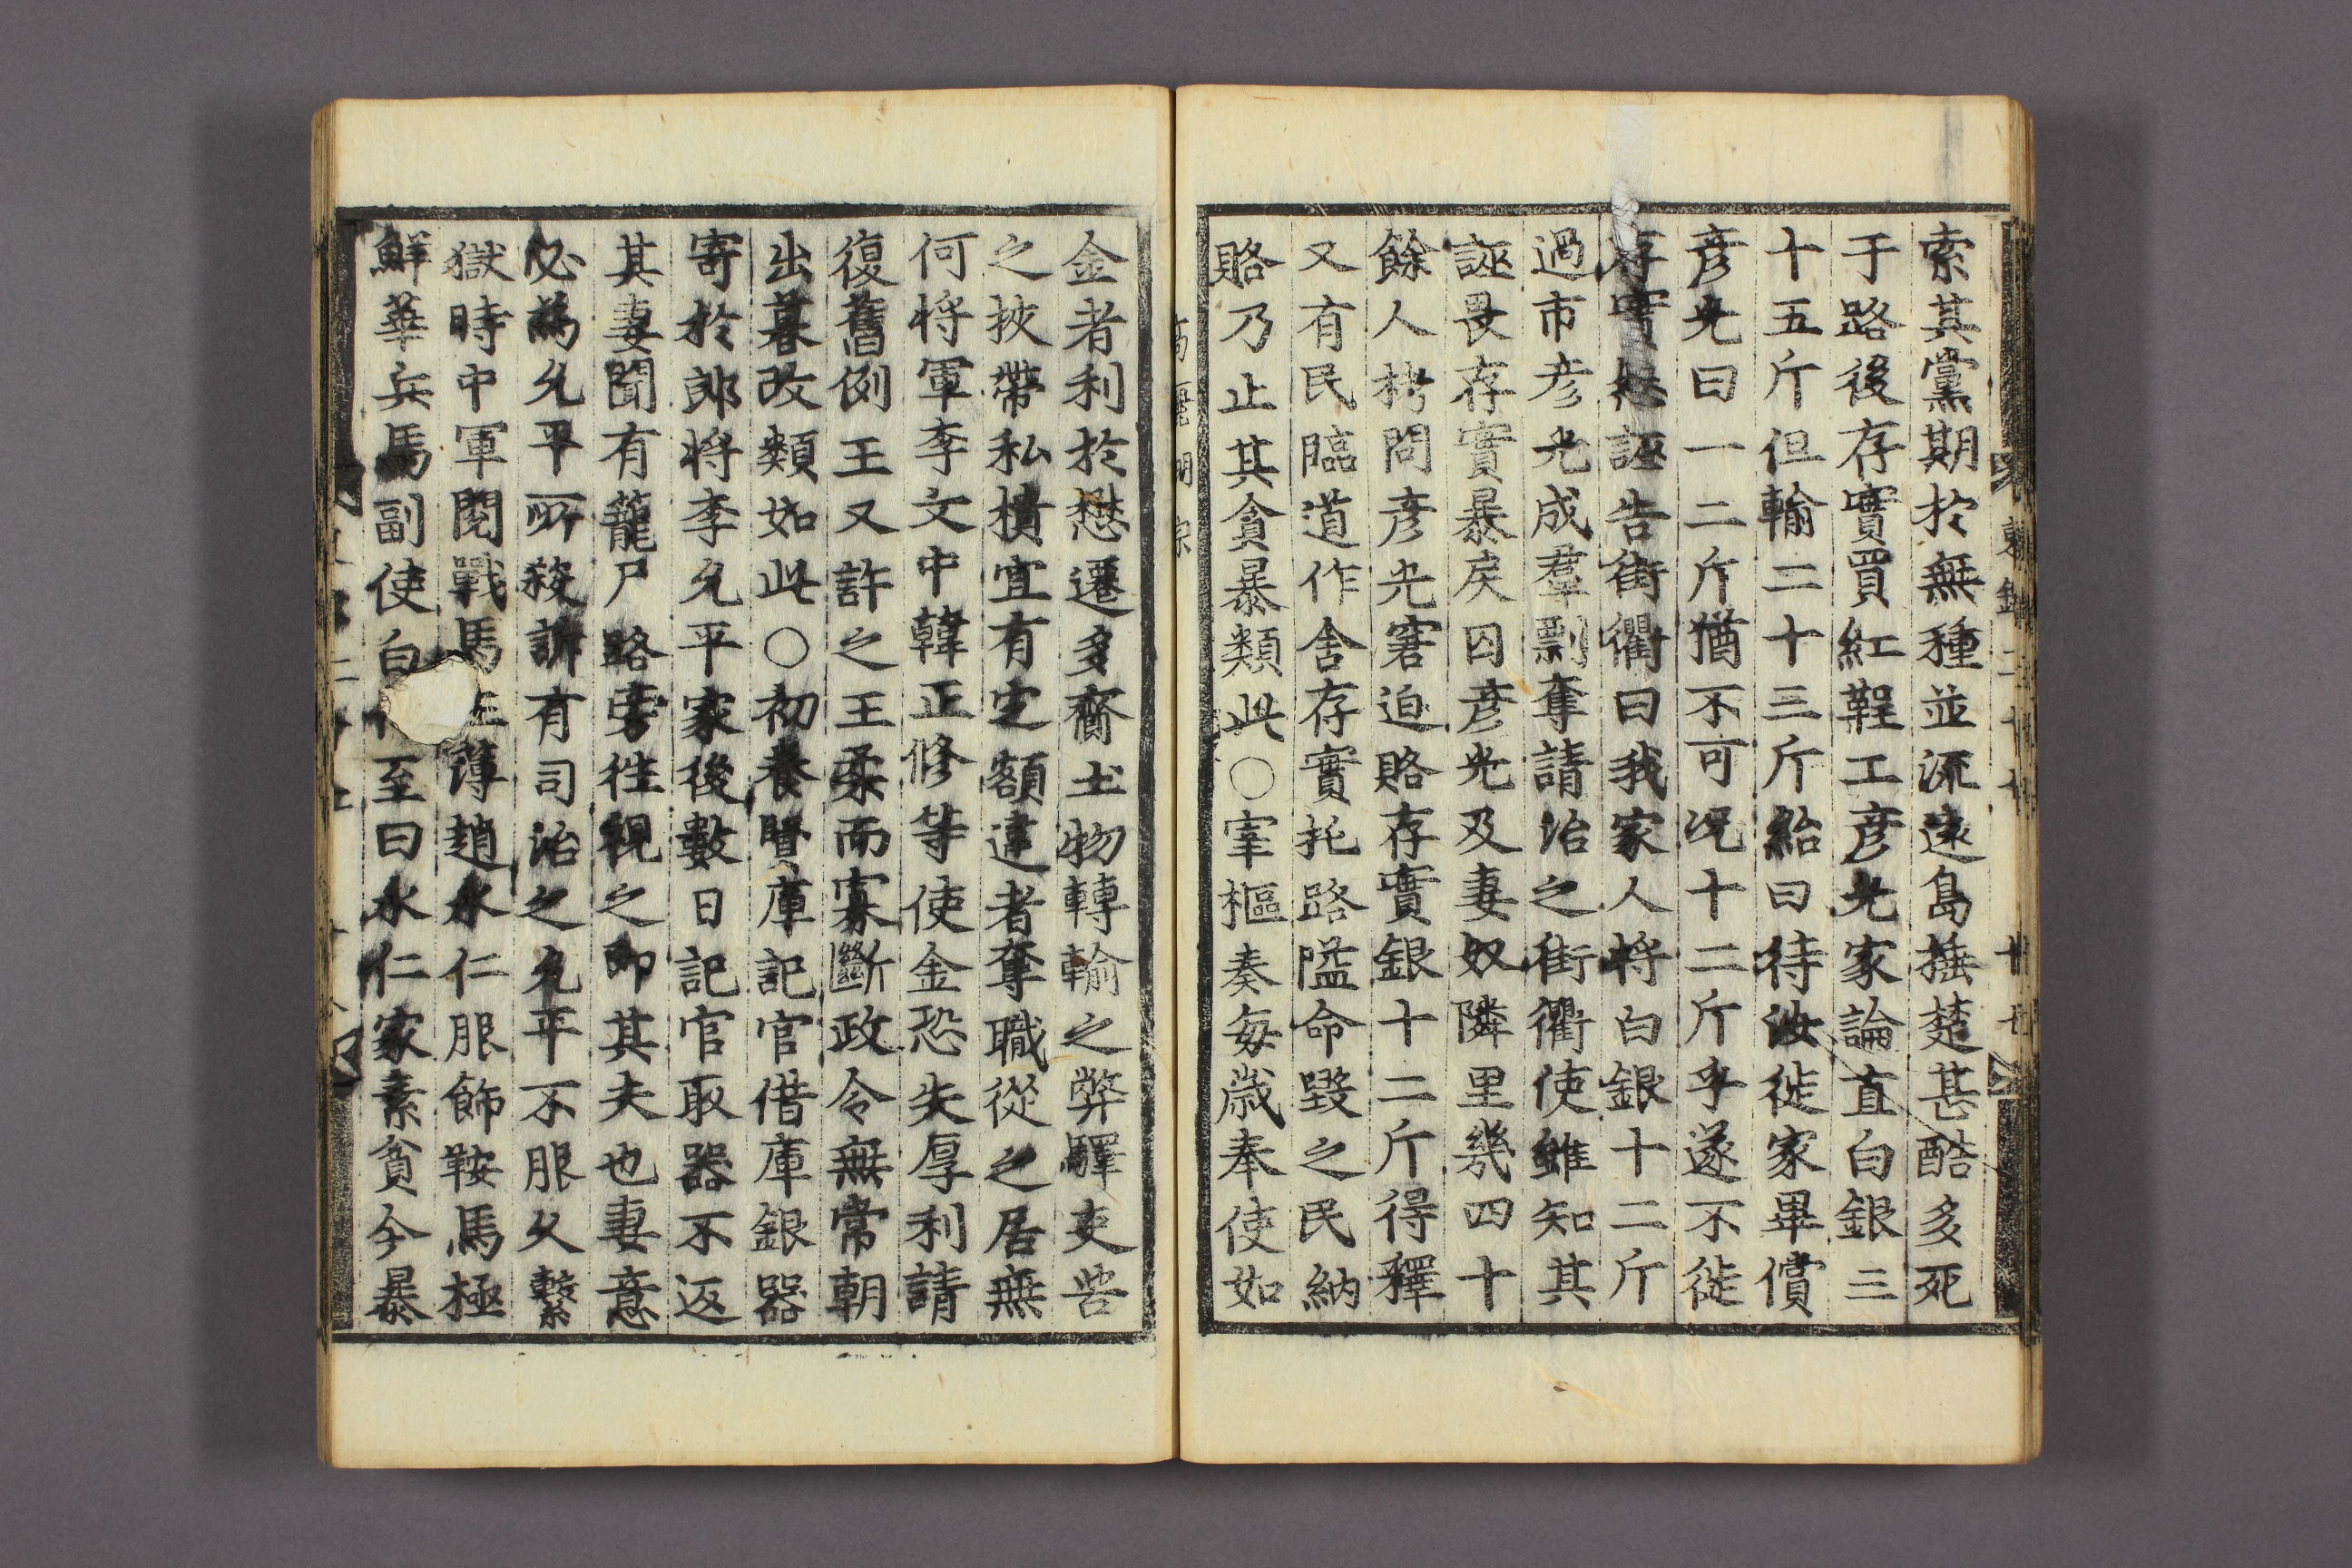 索其黨期於無種並流遠島捶楚甚酷多死
于路後存實買紅鞓工彦光家論直白銀三
十五斤但輸二十三斤紿曰待汝徙家畢償
彦光曰一二斤猶不可况十二斤乎遂不徙
存實怒誣告街衢曰我家人將白銀十二斤
過市彦光成羣剽奪請治之街衢使雖知其
誣畏存實暴戾囚彦光及妻奴隣里幾四十
餘人栲問彦光窘迫賂存實銀十二斤得釋
又有民臨道作舍存實托路隘命毀之民納
賂乃止其貪暴類此○宰樞奏每歲奉使如
金者利於懋遷多齎土物轉輸之弊驛吏苦
之挾帶私横宜有定額違者奪職從之居無
何將軍李文中韓正修等使金恐失厚利請
復舊例王又許之王柔而寡斷政令無常朝
出暮改類如此○初養賢庫記官借庫銀器
寄於郎將李允平家後數日記官取器不返
其妻聞有籠尸路旁徃視之卽其夫也妻意
必爲允平所殺訴有司治之允平不服久繫
獄時中軍閱戰馬簿趙永仁服飾鞍馬極
鮮華兵馬副使白至曰永仁家素貧今暴